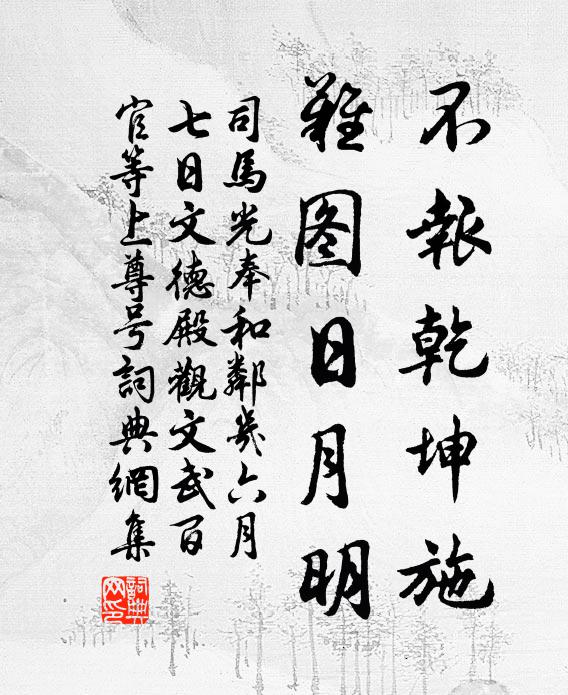 不報乾坤施
難图日月明
司馬光奉和鄰幾六月
七日文德殿觀文武百
官等上尊号詞典網集
詞典
网印